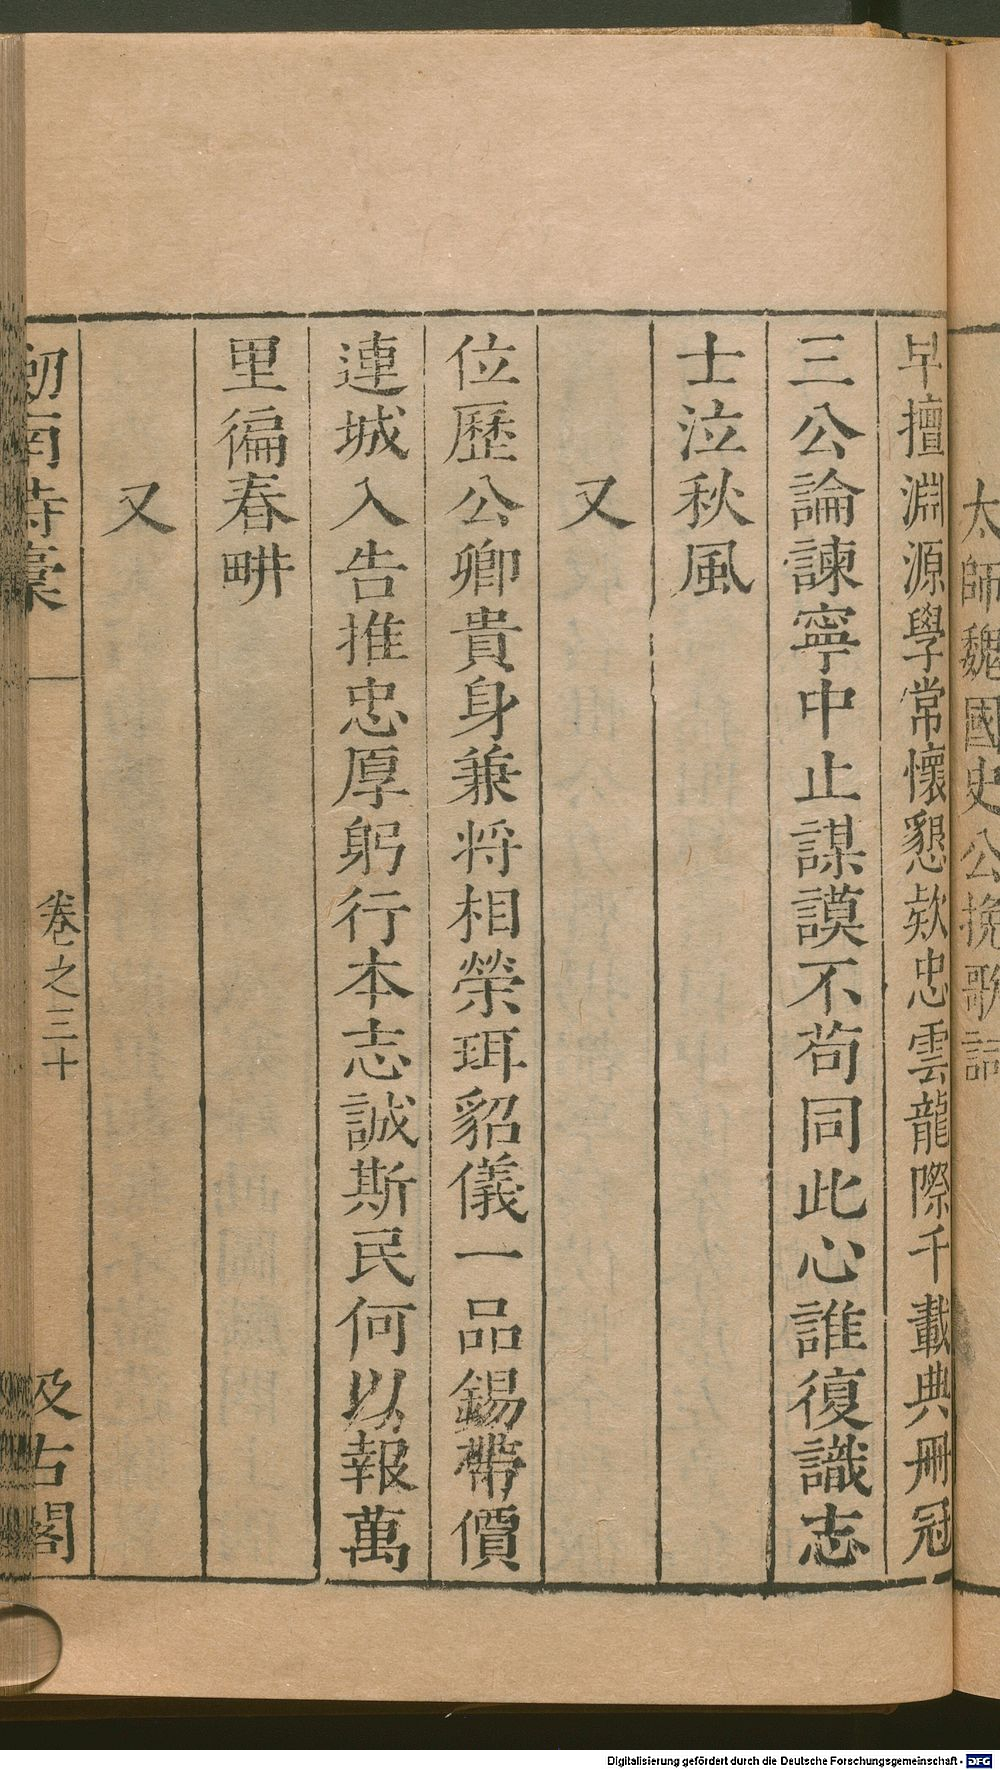 太師魏國史公挽歌詞
早擅淵源學常懷懇欵忠雲龍際千載典冊冠
三公論諫寧中止謀謨不茍同此心誰復識志
士泣秋風
又
位歷公卿貴身兼將相榮珥貂儀一品錫帶價
連城入告推忠厚躬行本志誠斯民何以報萬
里徧春畊
又
劒南詩稾
卷之三十
汲古閣
Digitalisierung gefördert durch die Deutsche Forschungsgemeinschaft - DFG